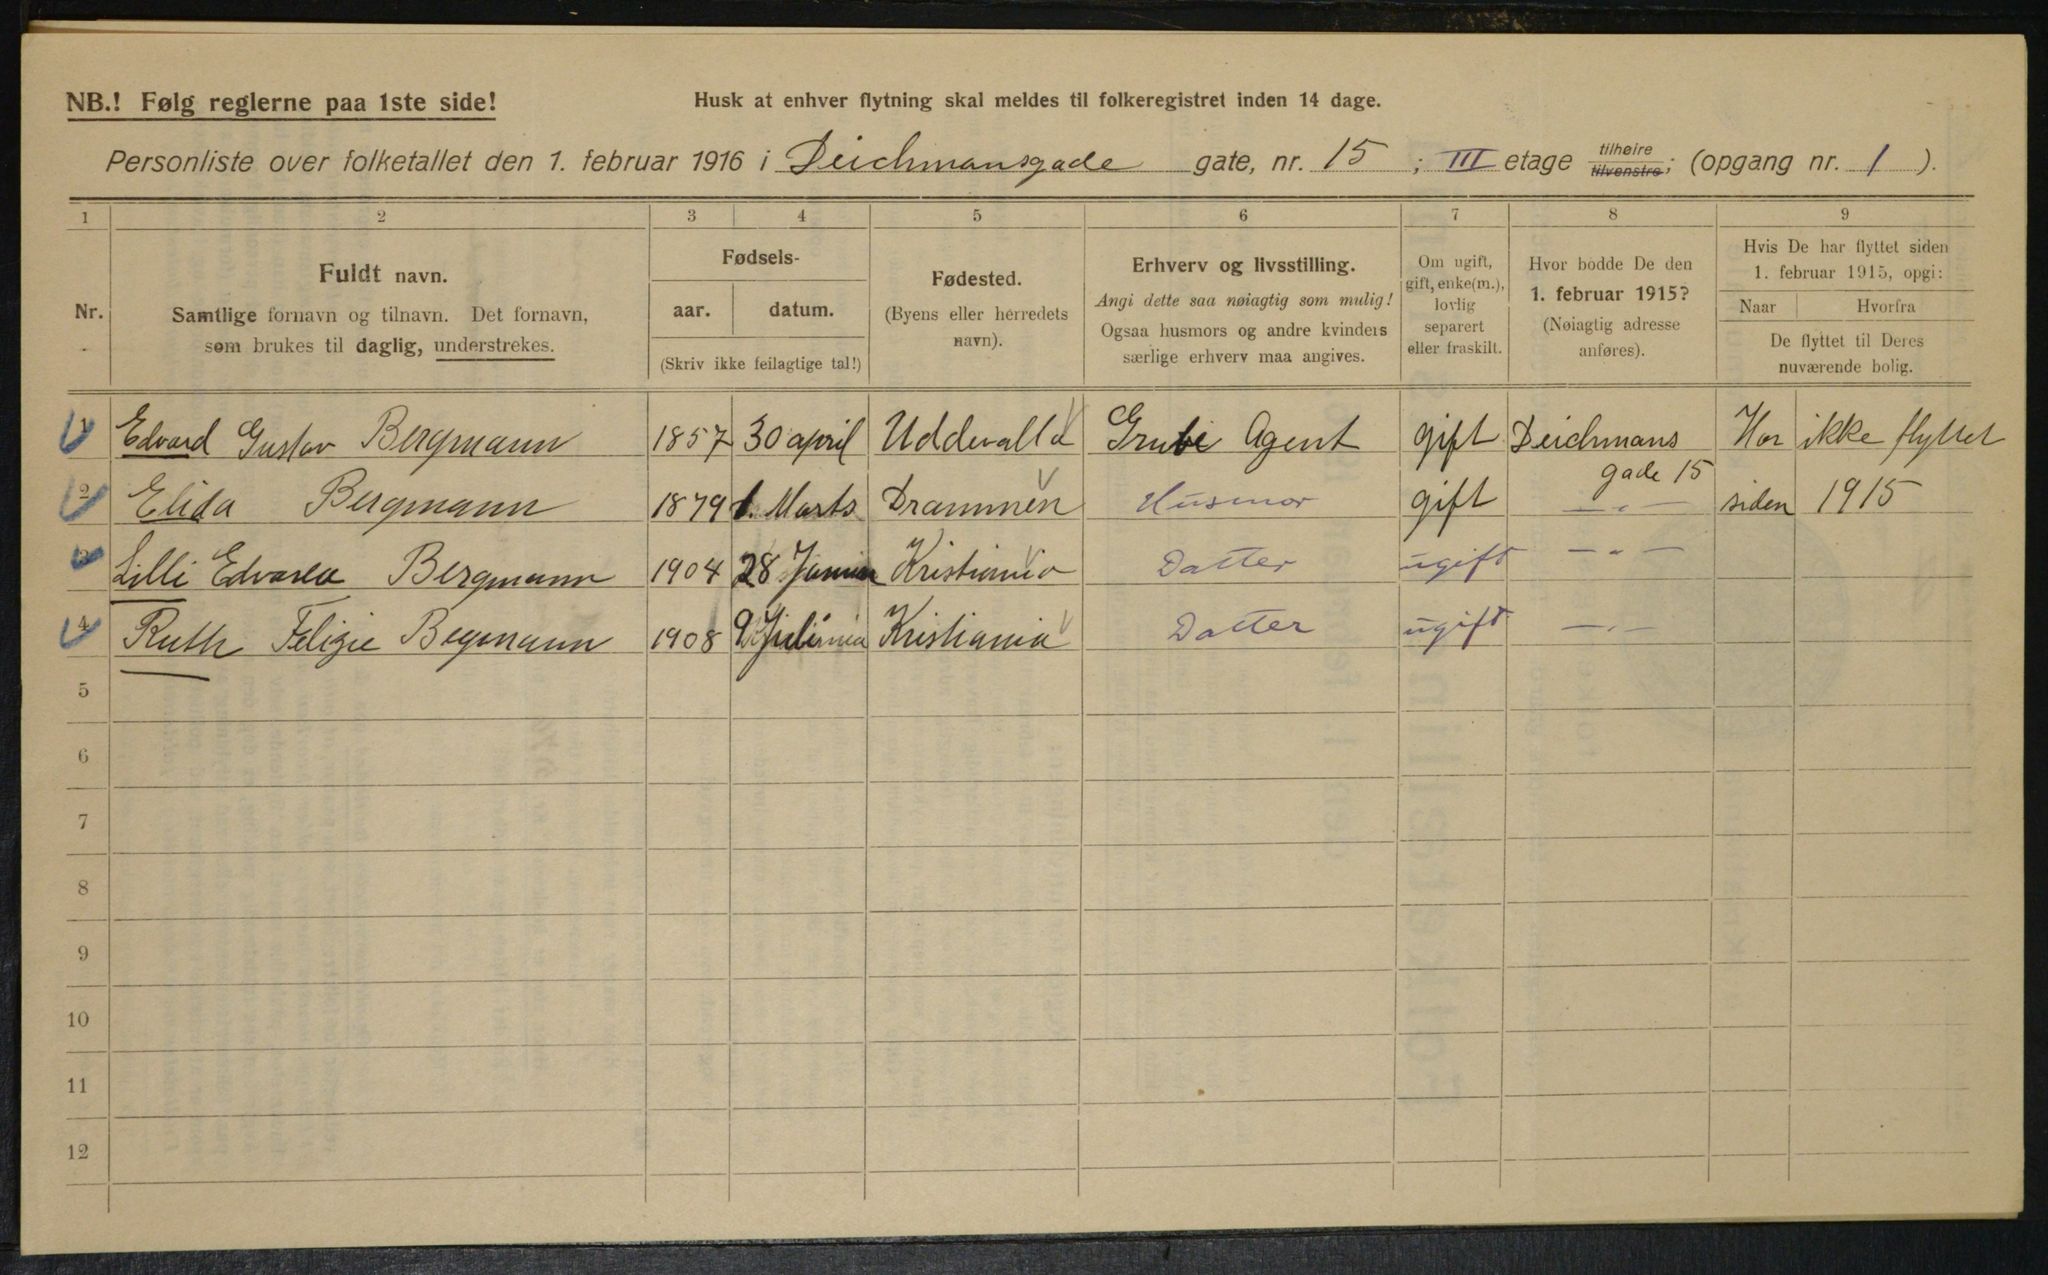 NB.! Følg reglerne paa 1ste side!
Husk at enhver flytning skal meldes til folkeregistret inden 14 dage.
Personliste over folketallet den 1. februar 1916 i Deichmansgade gate, nr. 15 ; III etage tilhøire tilvenstre; (opgang nr. 1 ).
1 2 3 4 5 6 7 8 9
Nr.
Fuldt navn.
Samtlige fornavn og tilnavn. Det fornavn,
som brukes til daglig, understrekes.
Fødsels-
aar. datum.
(Skriv ikke feilagtige tal!)
Fødested.
(Byens eller herredets
navn).
Erhverv og livsstilling.
Angi dette saa nøiagtig som mulig!
Ogsaa husmors og andre kvinders
særlige erhverv maa angives.
Om ugift,
gift, enke(m.),
lovlig
separert
eller fraskilt.
Hvor bodde De den
1. februar 1915?
(Nøiagtig adresse
anføres).
Hvis De har flyttet siden
1. februar 1915, opgi:
Naar Hvorfra
De flyttet til Deres
nuværende bolig.
1 Edvard Gustav Bergmann 1857 30 april Uddevalla Grube Agent gift Deichmans gade 15 Har ikke flyttet
2 Elida Bergmann 1879 1. Marts Drammen Husmor gift —„— siden 1915
3 Lilli Edvarda Bergmann 1904 28 Januar Kristiania Datter ugift —„—
4 Ruth Felizie Begmann 1908 9 Juli Kristiania Datter ugift —„—
5
6
7
8
9
10
11
12